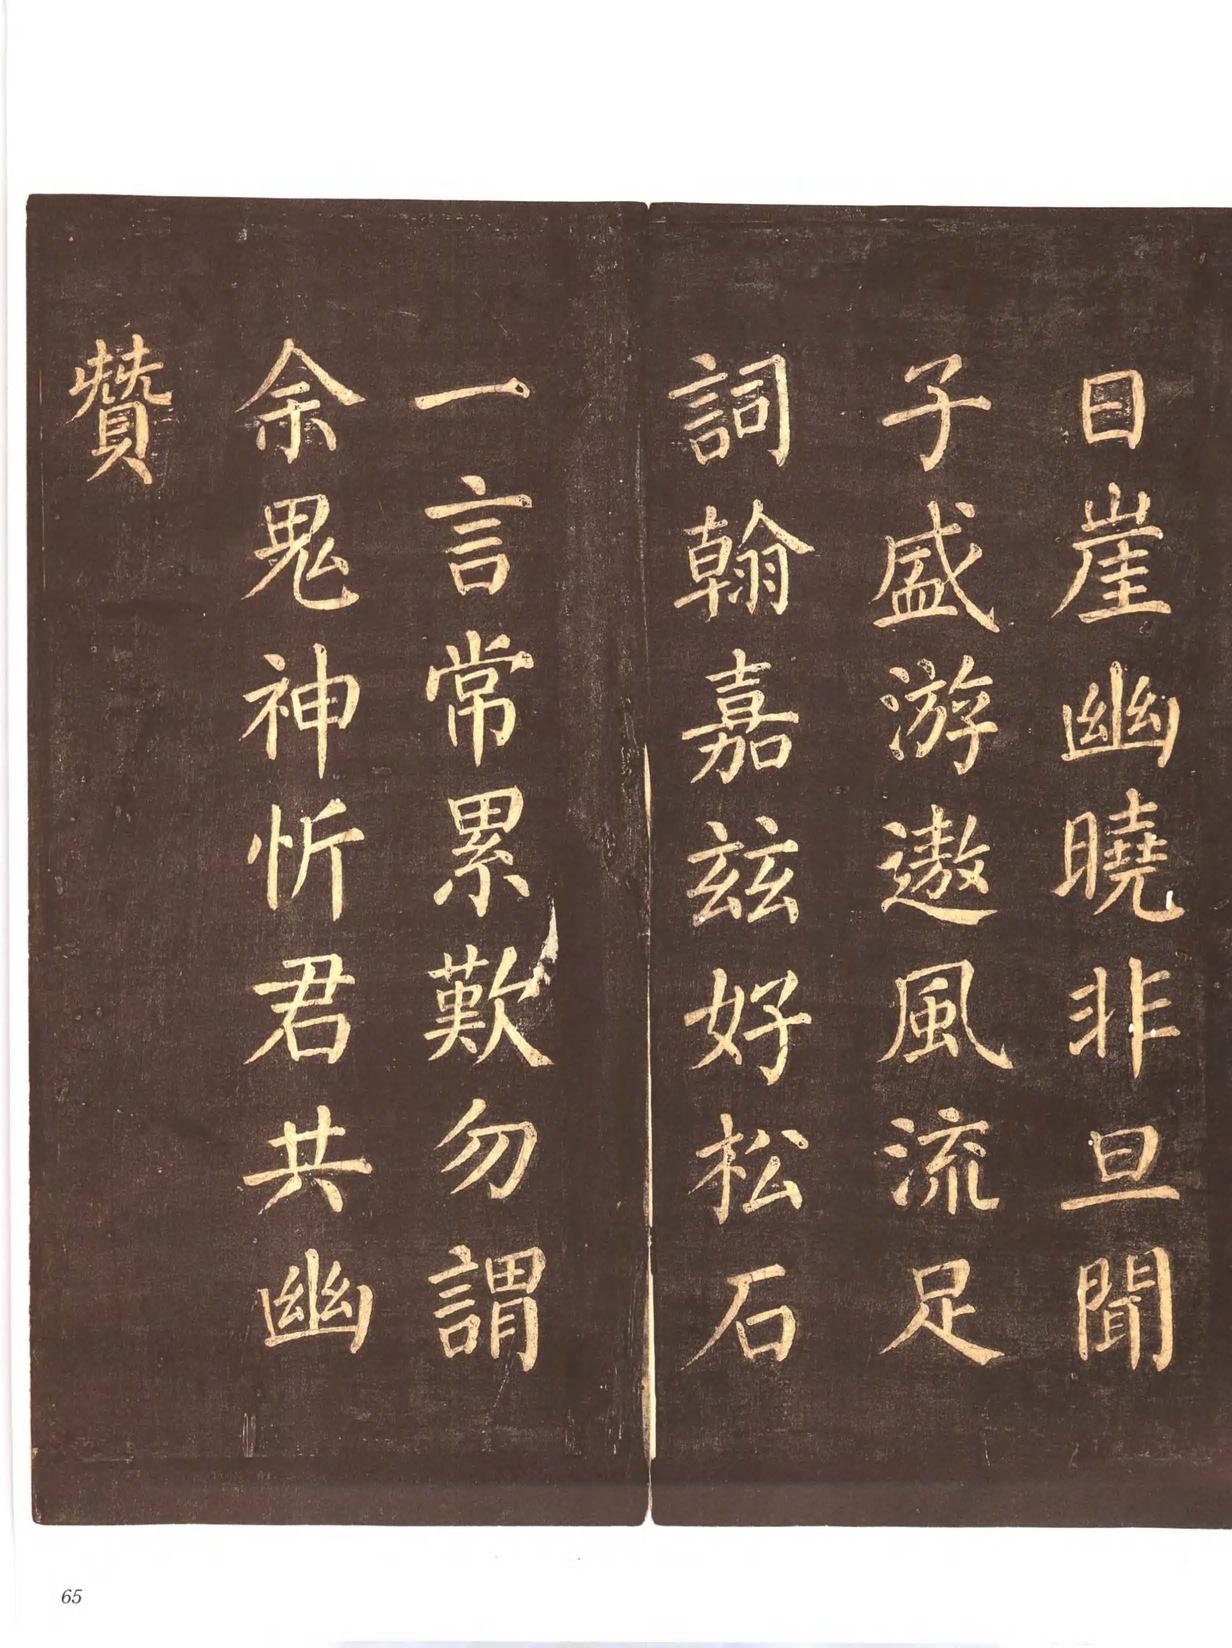 日崖幽曉非旦聞
子盛游遨風流足
詞翰嘉兹好松石
一言常累歎勿謂
余鬼神忻君共幽
贊
65